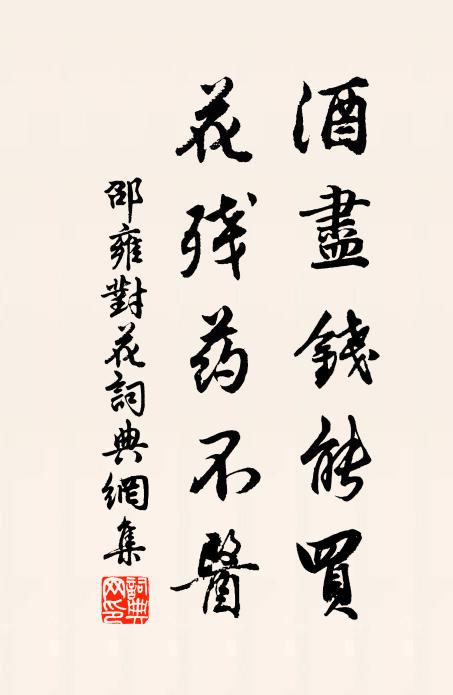 酒盡錢能買
花残药不醫
邵雍對花詞典網集
詞典網印